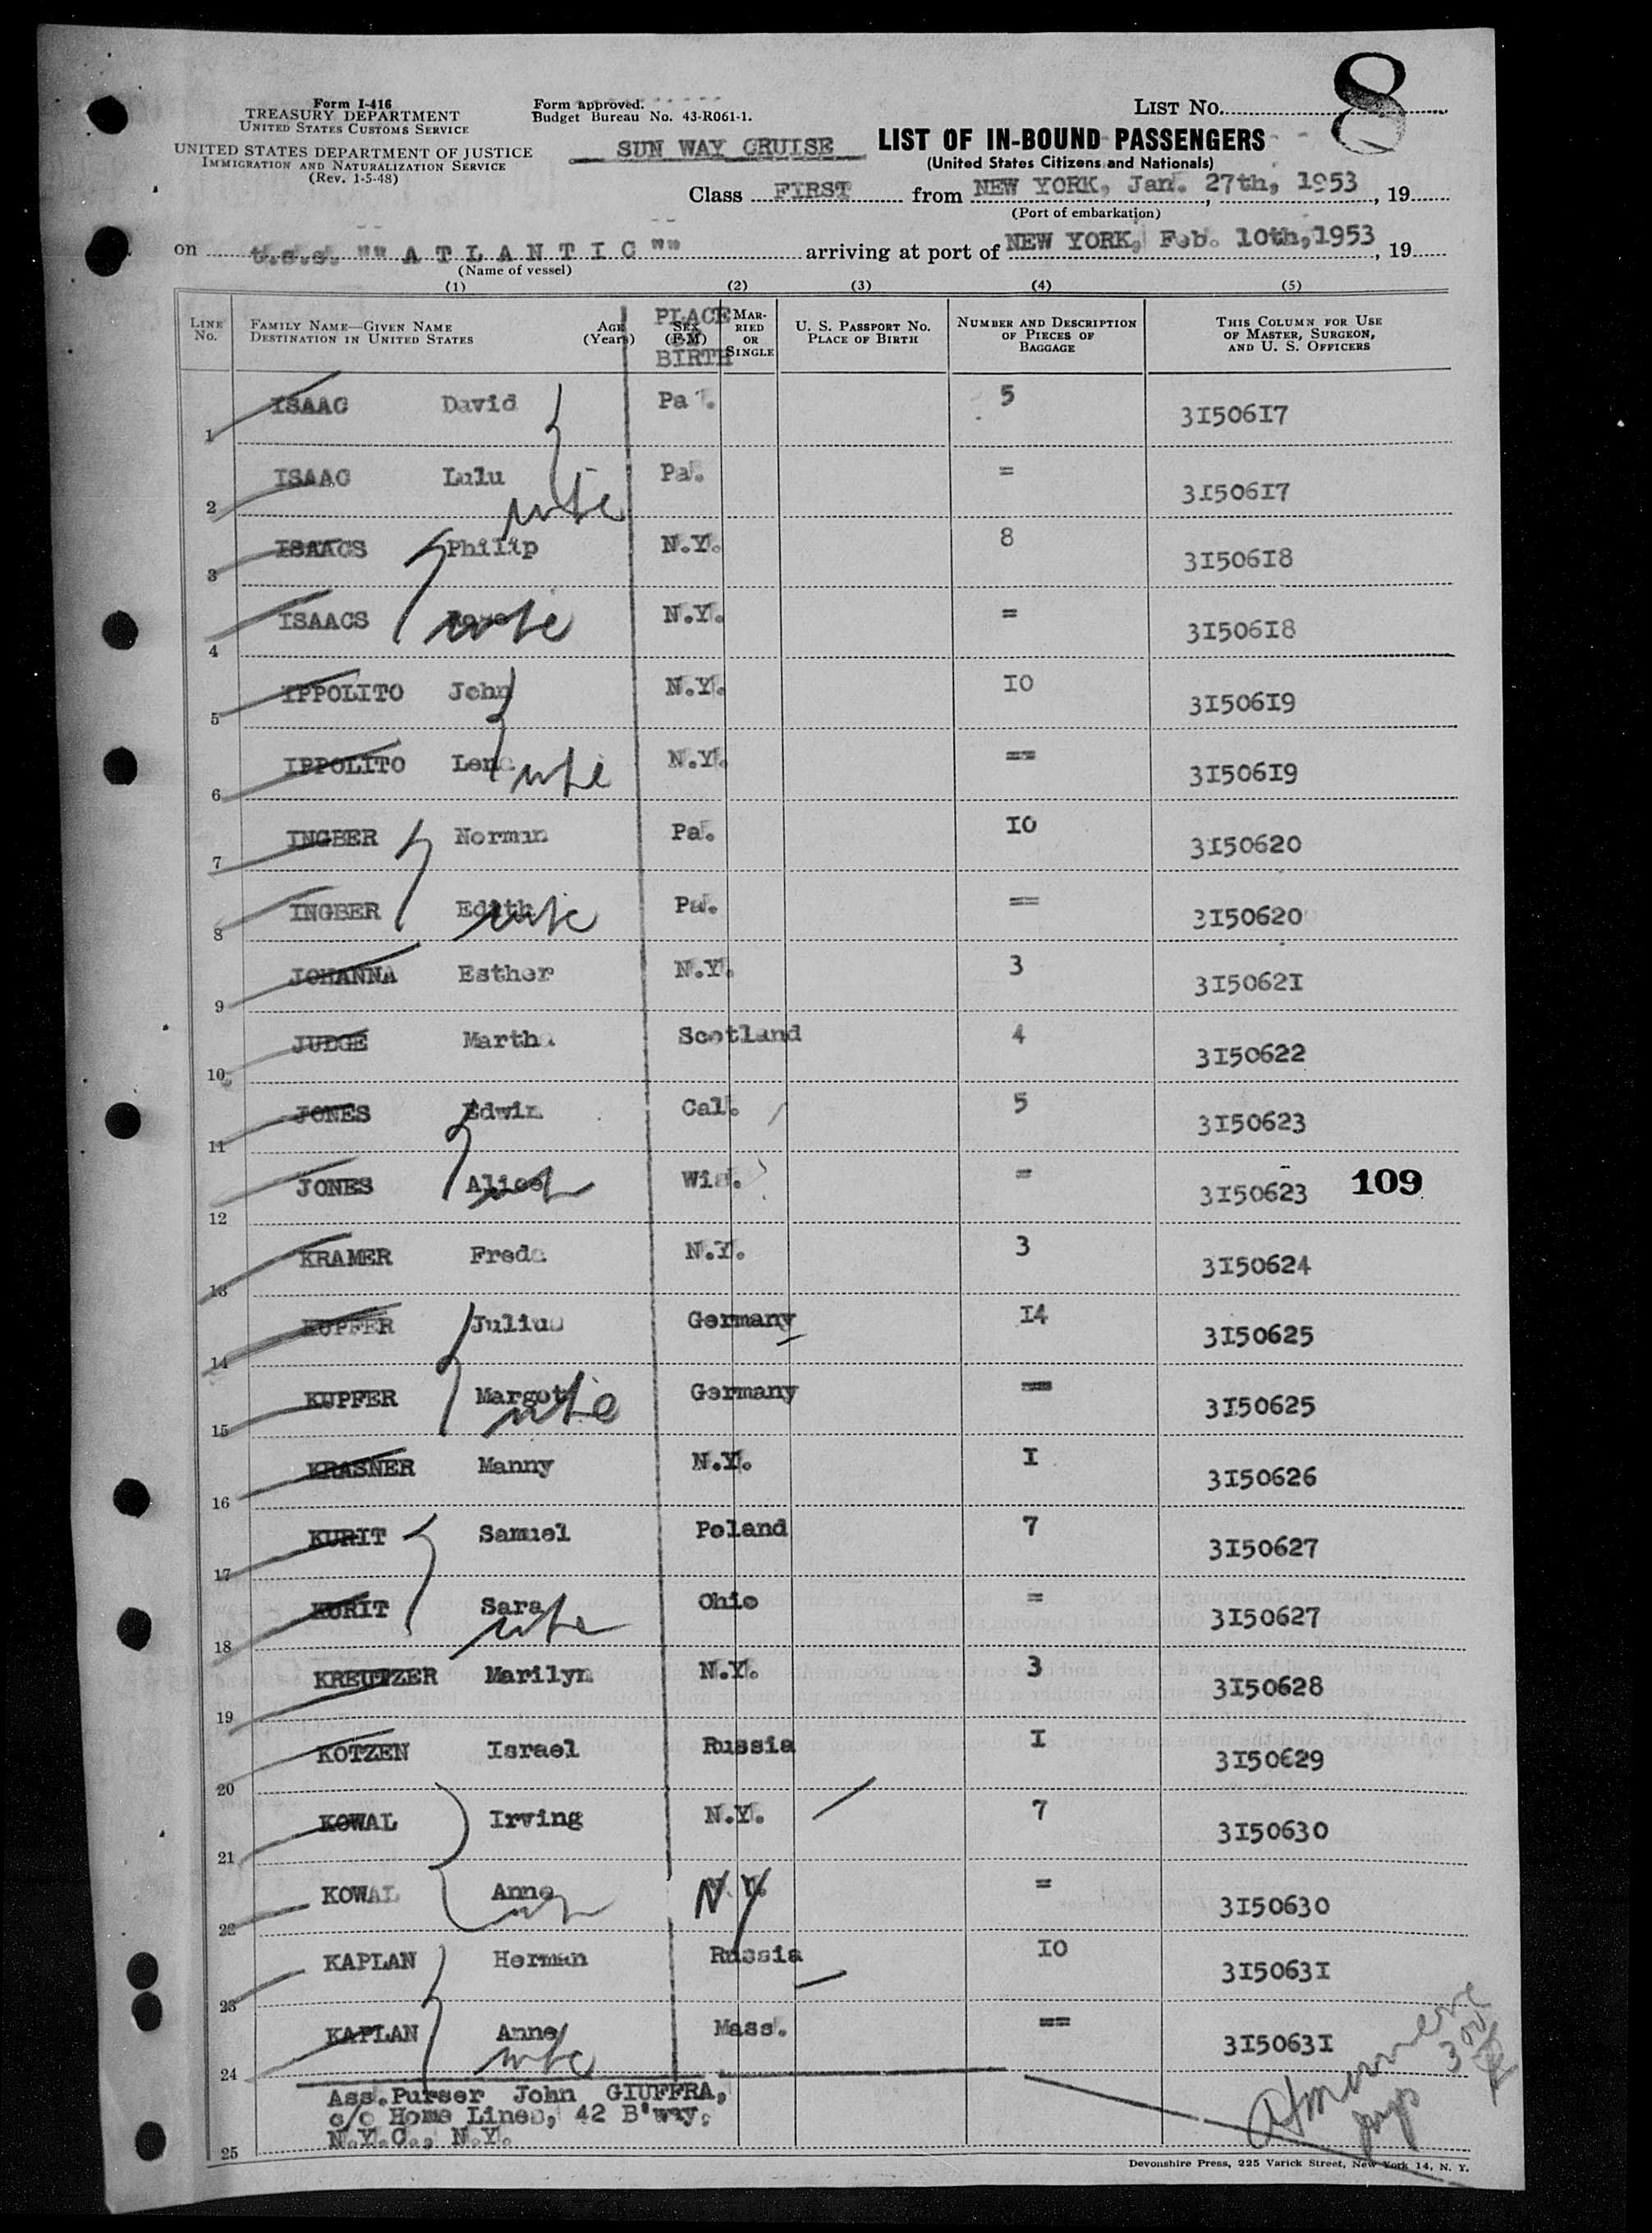 8
Form I-416
TREASURY DEPARTMENT
UNITED STATES CUSTOMS SERVICE
UNITED STATES DEPARTMENT OF JUSTICE
IMMIGRATION AND NATURALIZATION SERVICE
(Rev. 1-5-48)
Form approved.
Budget Bureau No. 43-R061-1.
LIST No.
SUN WAY CRUISE LIST OF IN-BOUND PASSENGERS
(United States Citizens and Nationals)
Class FIRST from NEW YORK, Jan. 27th, 1953, 19
(Port of embarkation)
on t.s.s. "" A T L A N T I C "" arriving at port of NEW YORK, Feb. 10th, 1953, 19
(Name of vessel)
(1) (2) (3) (4) (5)
LINE No. FAMILY NAME—GIVEN NAME DESTINATION IN UNITED STATES AGE (Years) SEX (F-M) PLACE BIRTH MARRIED OR SINGLE U. S. PASSPORT NO. PLACE OF BIRTH NUMBER AND DESCRIPTION OF PIECES OF BAGGAGE THIS COLUMN FOR USE OF MASTER, SURGEON, AND U. S. OFFICERS
1 ISAAC David Pa. 5 3I506I7
2 ISAAC Lulu wife Pa. = 3I506I7
3 ISAACS Philip N.Y. 8 3I506I8
4 ISAACS wife N.Y. = 3I506I8
5 IPPOLITO John N.Y. IO 3I506I9
6 IPPOLITO Lena wife N.Y. == 3I506I9
7 INGBER Norman Pa. IO 3I50620
8 INGBER Edith wife Pa. == 3I50620
9 JOHANNA Esther N.Y. 3 3I5062I
10 JUDGE Martha Scotland 4 3I50622
11 JONES Edwin Cal. 5 3I50623
12 JONES Alice Wis. = 3I50623 109
13 KRAMER Freda N.Y. 3 3I50624
14 KUPFER Julius Germany I4 3I50625
15 KUPFER Margot wife Germany == 3I50625
16 KRASNER Manny N.Y. I 3I50626
17 KURIT Samuel Poland 7 3I50627
18 KURIT Sara wife Ohio = 3I50627
19 KREUTZER Marilyn N.Y. 3 3I50628
20 KOTZEN Israel Russia I 3I50629
21 KOWAL Irving N.Y. 7 3I50630
22 KOWAL Anne N.Y. = 3I50630
23 KAPLAN Herman Russia IO 3I5063I
24 KAPLAN Anne wife Mass. == 3I5063I
Ass.Purser John GIUFFRA,
c/o Home Lines, 42 B'way,
25 N.Y.C., N.Y.
Devonshire Press, 225 Varick Street, New York 14, N. Y.